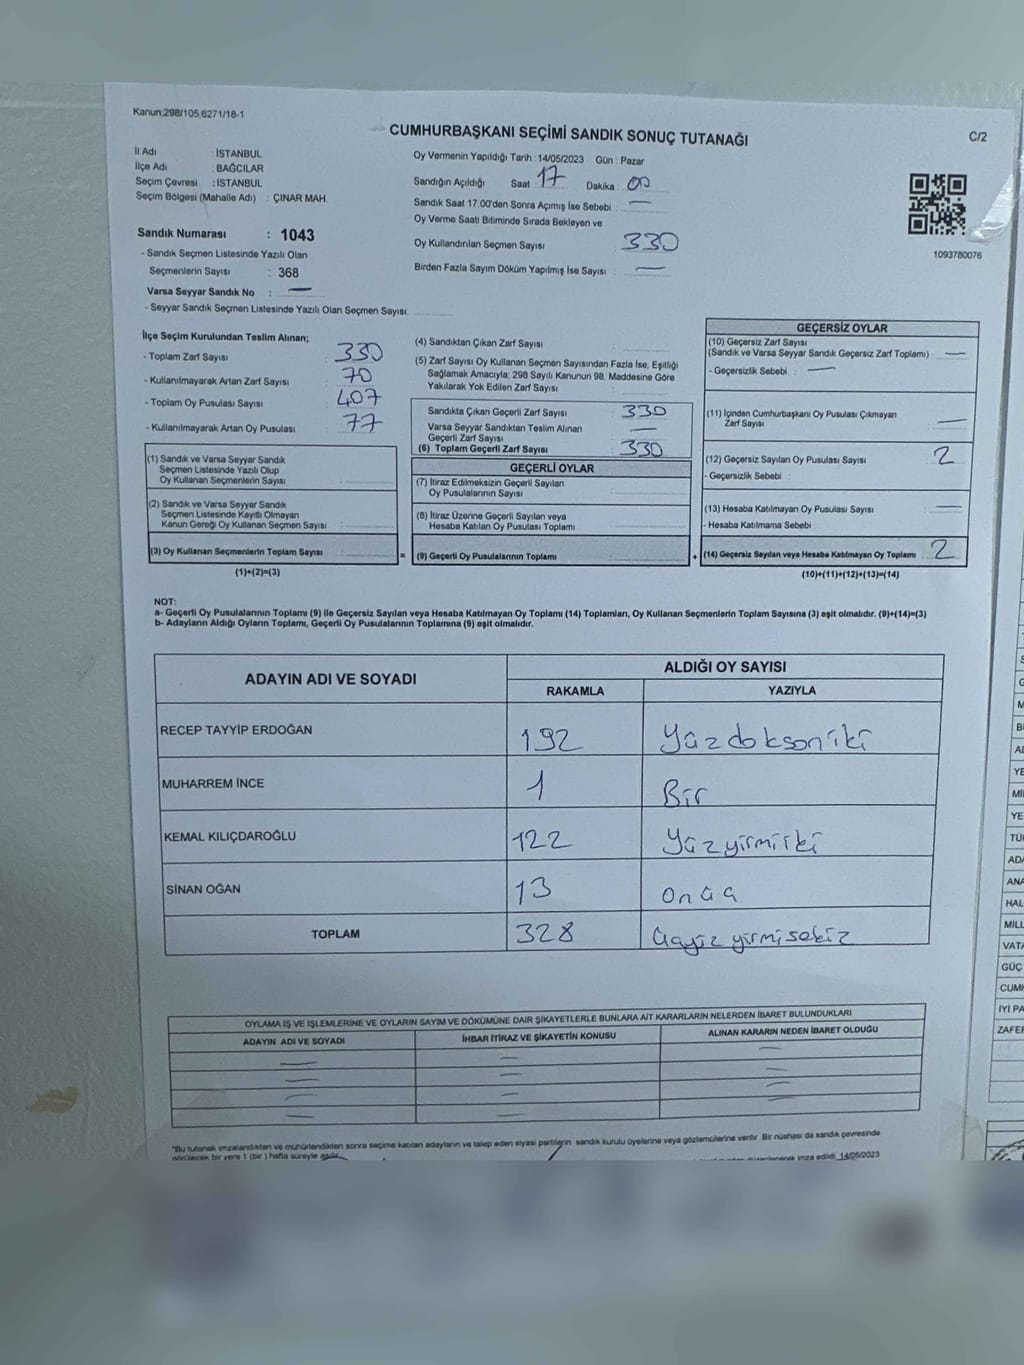 Kanun:298/105,6271/18-1
CUMHURBAŞKANI SEÇİMİ SANDIK SONUÇ TUTANAĞI
C/2
İl Adı : İSTANBUL
İlçe Adı : BAĞCILAR
Seçim Çevresi : İSTANBUL
Seçim Bölgesi (Mahalle Adı) : ÇINAR MAH.
Sandık Numarası : 1043
- Sandık Seçmen Listesinde Yazılı Olan
Seçmenlerin Sayısı : 368
Varsa Seyyar Sandık No : —
- Seyyar Sandık Seçmen Listesinde Yazılı Olan Seçmen Sayısı:
Oy Vermenin Yapıldığı Tarih : 14/05/2023 Gün : Pazar
Sandığın Açıldığı Saat 17 Dakika : 00
Sandık Saat 17.00'den Sonra Açımış İse Sebebi : —
Oy Verme Saati Bitiminde Sırada Bekleyen ve
Oy Kullandırılan Seçmen Sayısı : 330
Birden Fazla Sayım Döküm Yapılmış İse Sayısı : —
1093780076
İlçe Seçim Kurulundan Teslim Alınan;
- Toplam Zarf Sayısı : 330
- Kullanılmayarak Artan Zarf Sayısı : 70
- Toplam Oy Pusulası Sayısı : 407
- Kullanılmayarak Artan Oy Pusulası : 77
(1) Sandık ve Varsa Seyyar Sandık
Seçmen Listesinde Yazılı Olup
Oy Kullanan Seçmenlerin Sayısı :
(2) Sandık ve Varsa Seyyar Sandık
Seçmen Listesinde Kayıtlı Olmayan
Kanun Gereği Oy Kullanan Seçmen Sayısı :
(3) Oy Kullanan Seçmenlerin Toplam Sayısı :
(1)+(2)=(3)
(4) Sandıktan Çıkan Zarf Sayısı :
(5) Zarf Sayısı Oy Kullanan Seçmen Sayısından Fazla İse, Eşitliği
Sağlamak Amacıyla; 298 Sayılı Kanunun 98. Maddesine Göre
Yakılarak Yok Edilen Zarf Sayısı :
Sandıkta Çıkan Geçerli Zarf Sayısı : 330
Varsa Seyyar Sandıktan Teslim Alınan
Geçerli Zarf Sayısı : —
(6) Toplam Geçerli Zarf Sayısı : 330
GEÇERLİ OYLAR
(7) İtiraz Edilmeksizin Geçerli Sayılan
Oy Pusulalarının Sayısı :
(8) İtiraz Üzerine Geçerli Sayılan veya
Hesaba Katılan Oy Pusulası Toplamı :
= (9) Geçerli Oy Pusulalarının Toplamı : +
GEÇERSİZ OYLAR
(10) Geçersiz Zarf Sayısı
(Sandık ve Varsa Seyyar Sandık Geçersiz Zarf Toplamı) : —
- Geçersizlik Sebebi : —
(11) İçinden Cumhurbaşkanı Oy Pusulası Çıkmayan
Zarf Sayısı : —
(12) Geçersiz Sayılan Oy Pusulası Sayısı : 2
- Geçersizlik Sebebi :
(13) Hesaba Katılmayan Oy Pusulası Sayısı : —
- Hesaba Katılmama Sebebi :
(14) Geçersiz Sayılan veya Hesaba Katılmayan Oy Toplamı : 2
(10)+(11)+(12)+(13)=(14)
NOT:
a- Geçerli Oy Pusulalarının Toplamı (9) ile Geçersiz Sayılan veya Hesaba Katılmayan Oy Toplamı (14) Toplamları, Oy Kullanan Seçmenlerin Toplam Sayısına (3) eşit olmalıdır. (9)+(14)=(3)
b- Adayların Aldığı Oyların Toplamı, Geçerli Oy Pusulalarının Toplamına (9) eşit olmalıdır.
ADAYIN ADI VE SOYADI
ALDIĞI OY SAYISI
RAKAMLA YAZIYLA
RECEP TAYYİP ERDOĞAN 192 Yüzdoksaniki
MUHARREM İNCE 1 Bir
KEMAL KILIÇDAROĞLU 122 Yüzyirmiiki
SİNAN OĞAN 13 Onüç
TOPLAM 328 Üçyüzyirmisekiz
OYLAMA İŞ VE İŞLEMLERİNE VE OYLARIN SAYIM VE DÖKÜMÜNE DAİR ŞİKAYETLERLE BUNLARA AİT KARARLARIN NELERDEN İBARET BULUNDUKLARI
ADAYIN ADI VE SOYADI İHBAR İTİRAZ VE ŞİKAYETİN KONUSU ALINAN KARARIN NEDEN İBARET OLDUĞU
— — —
— — —
— — —
— — —
"Bu tutanak imzalandıktan ve mühürlendikten sonra seçime katılan adayların ve talep eden siyasi partilerin sandık kurulu üyelerine veya gözlemcilerine verilir. Bir nüshası da sandık çevresinde
görülecek bir yere 1 (bir ) hafta süreyle asılır. imza edildi. 14/05/2023
GÜÇ
İYİ PA
ZAFER